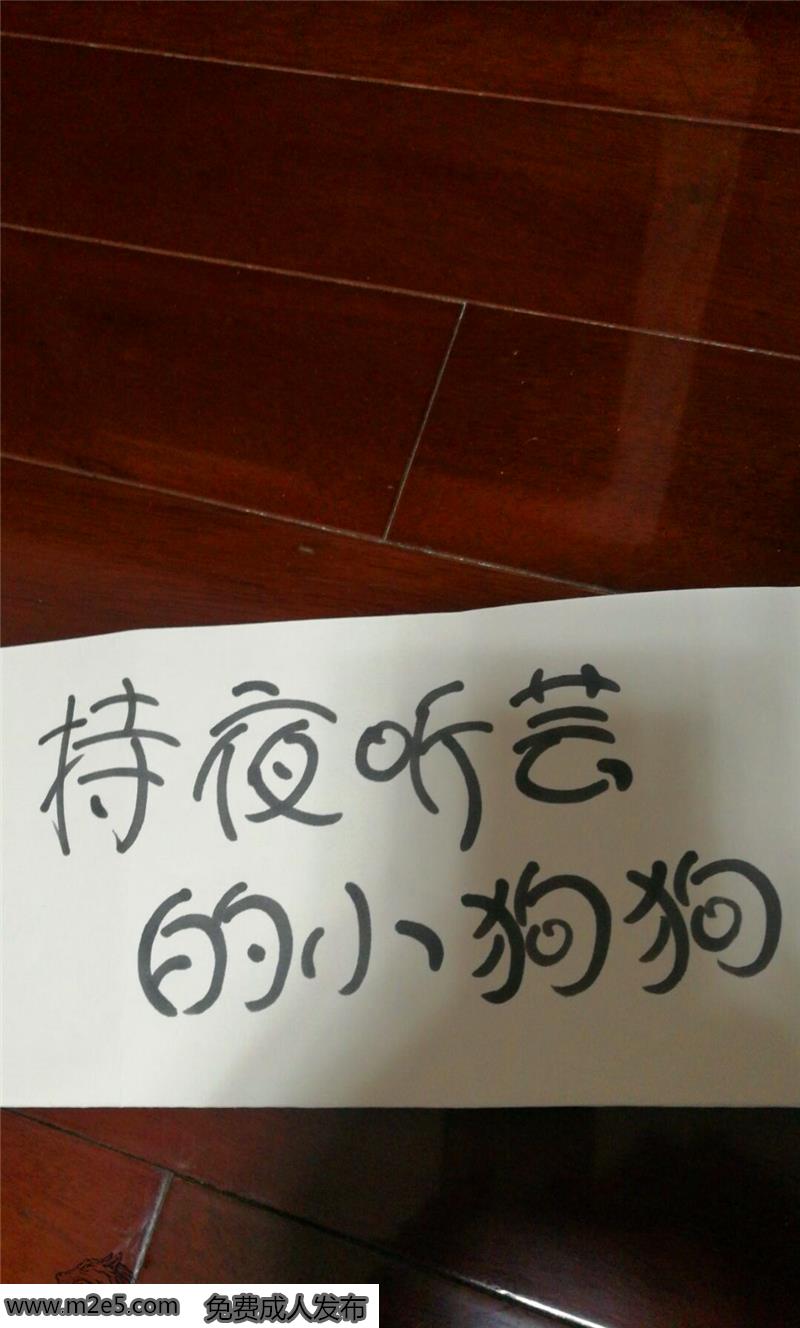 持夜听芸
的小狗狗
www.m2e5.com 免费成人发布